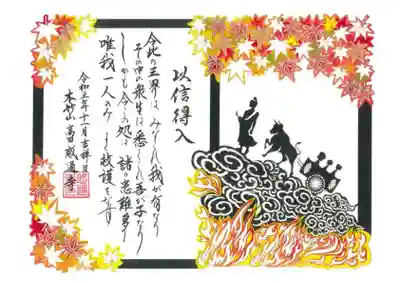 以信得入
今此の三界は みなこれ我が有なり
その中の衆生は 悉くこれ吾が子なり
しかも今この処は 諸の患難多し
唯我一人のみ よく救護をなす
令和五年十一月吉祥日